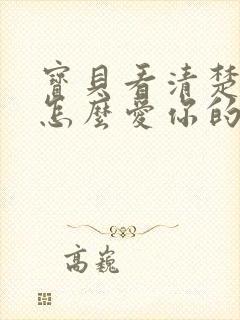 寶貝看清楚
怎麼愛你的
高巍